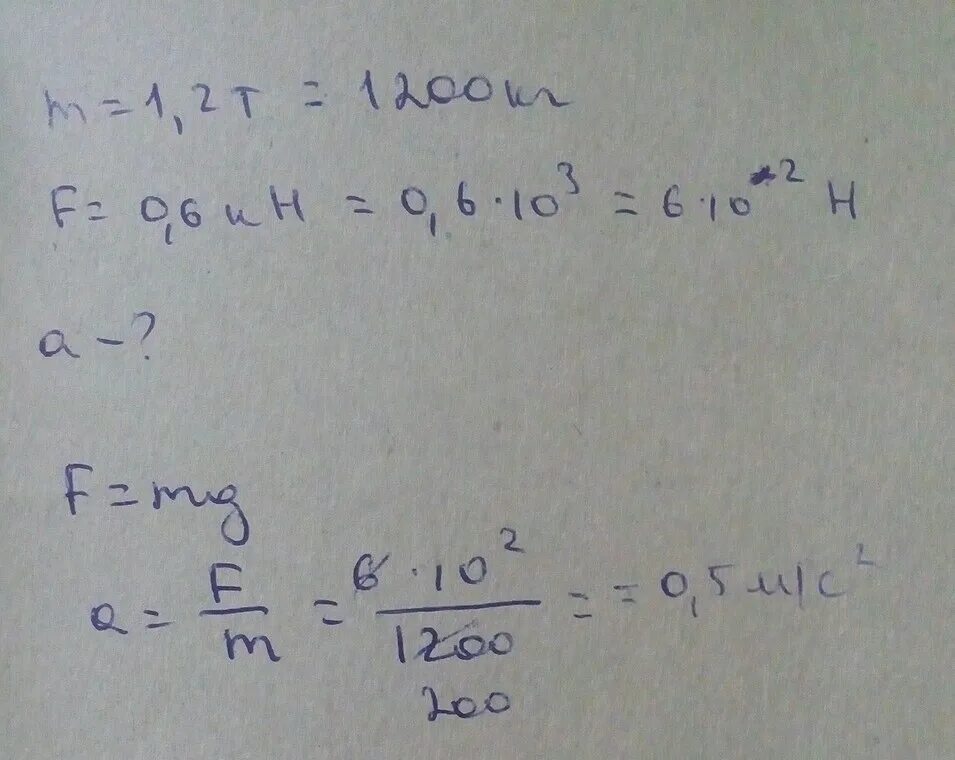 m = 1,2 т = 1200 кг
F = 0,6 кН = 0,6·10³ = 6·10² Н
a – ?
F = mg
a = F/m = 6·10²/1200 = = 0,5 м/с²
200